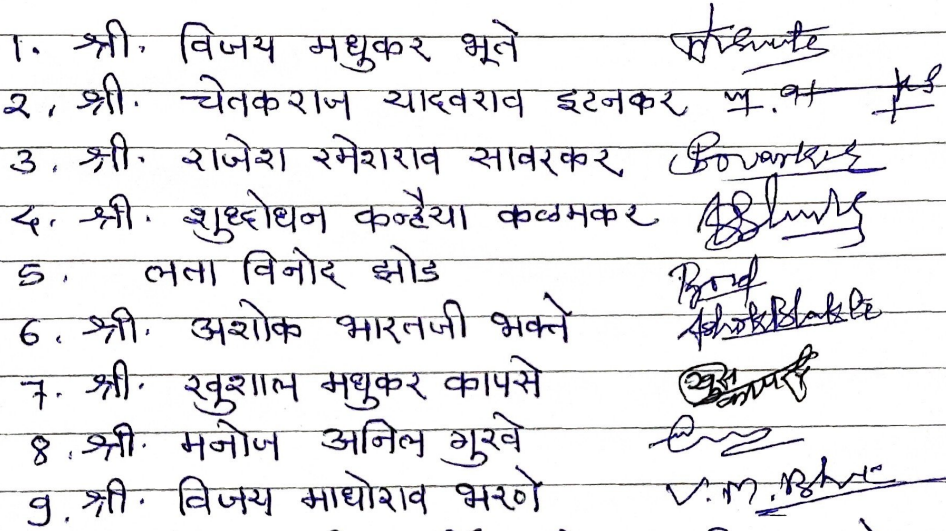 1. श्री. विजय मधुकर भूते
२. श्री. चेतकराज यादवराव इटनकर
3. श्री. राजेश रमेशराव सावरकर
४. श्री. शुध्दोधन कन्हैया कळमकर
5. लता विनोद झोड
6. श्री. अशोक भारतजी भक्ते Ashok Bhakte
7. श्री. खुशाल मधुकर कापसे
8. श्री. मनोज अनिल गुरवे
9. श्री. विजय माधोराव भरणे V.M.